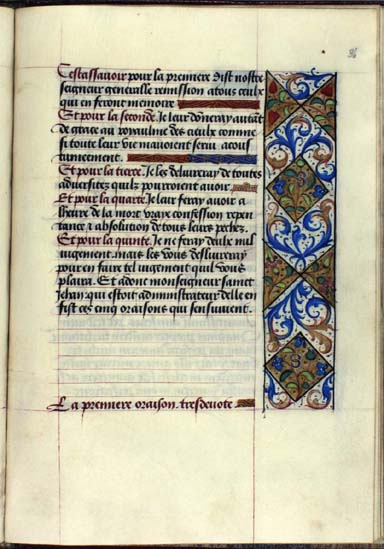 Cest assavoir pour la premiere dist nostre
seigneur generalle remission a tous ceulx
qui en feront memoire
Et pour la seconde. Je leur dōneray autāt
de grace au royaulme des cieulx comme
si toute leur vie mavoient servi a tous
iours
Et pour la tierce. Je les delivreray de toutes
adversitez quilz pourroient avoir.
Et pour la quarte. Je leur feray avoir a
lheure de la mort vraye confession repen
tance & absolution de tous leurs pechez.
Et pour la quinte. Je ne feray deulx nul
iugement. mais les vous deslivreray
pour en faire tel iugement quil vous
plaira. Et adonc monseigneur sainct
Jehan qui estoit administrateur delle en
fist ces cinq oraisons qui sensuivent.
La premiere oraison. tresdevote